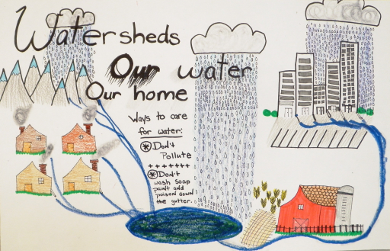 Watersheds
Our water
Our home
Ways to care
for water:
* Don't
Pollute
+++++++
* Don't
wash soap
paint and
poison down
the gutter.